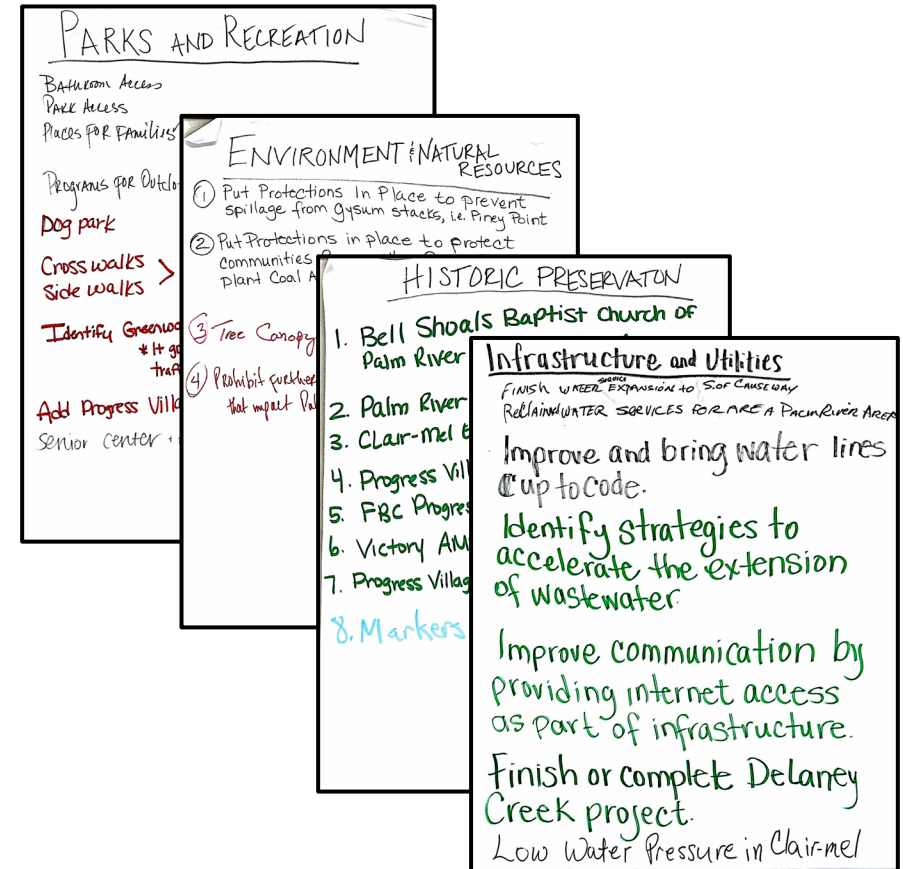 PARKS AND RECREATION
BATHROOM ACCESS
PARK ACCESS
PLACES FOR FAMILIES
PROGRAMS FOR
Dog park
Cross walks >
Side walks
Identify
* It
Add Progress
Senior center
ENVIRONMENT & NATURAL
RESOURCES
① Put Protections In Place to prevent
spillage from gysum stacks, i.e. Piney Point
② Put Protections in place to protect
communities
plant Coal
③ Tree Canopy
④ Prohibit further
that impact
HISTORIC PRESERVATON
1. Bell Shoals Baptist Church of
Palm River
2. Palm River
3. Clair-mel
4. Progress
5. FBC
6. Victory
7. Progress
8. Markers
Infrastructure and Utilities
FINISH WATER SERVICE EXPANSION TO S. OF CAUSEWAY
RECLAINED WATER SERVICES FOR AREA PALM RIVER AREA
Improve and bring water lines
up to code.
Identify strategies to
accelerate the extension
of wastewater.
Improve communication by
providing internet access
as part of infrastructure.
Finish or complete Delaney
Creek project.
Low Water Pressure in Clair-mel